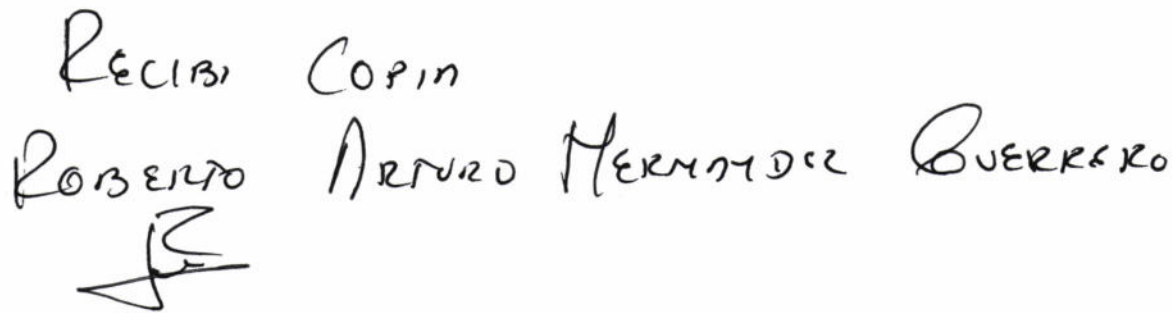 RECIBI COPIA
ROBERTO ARTURO HERNANDEZ GUERRERO